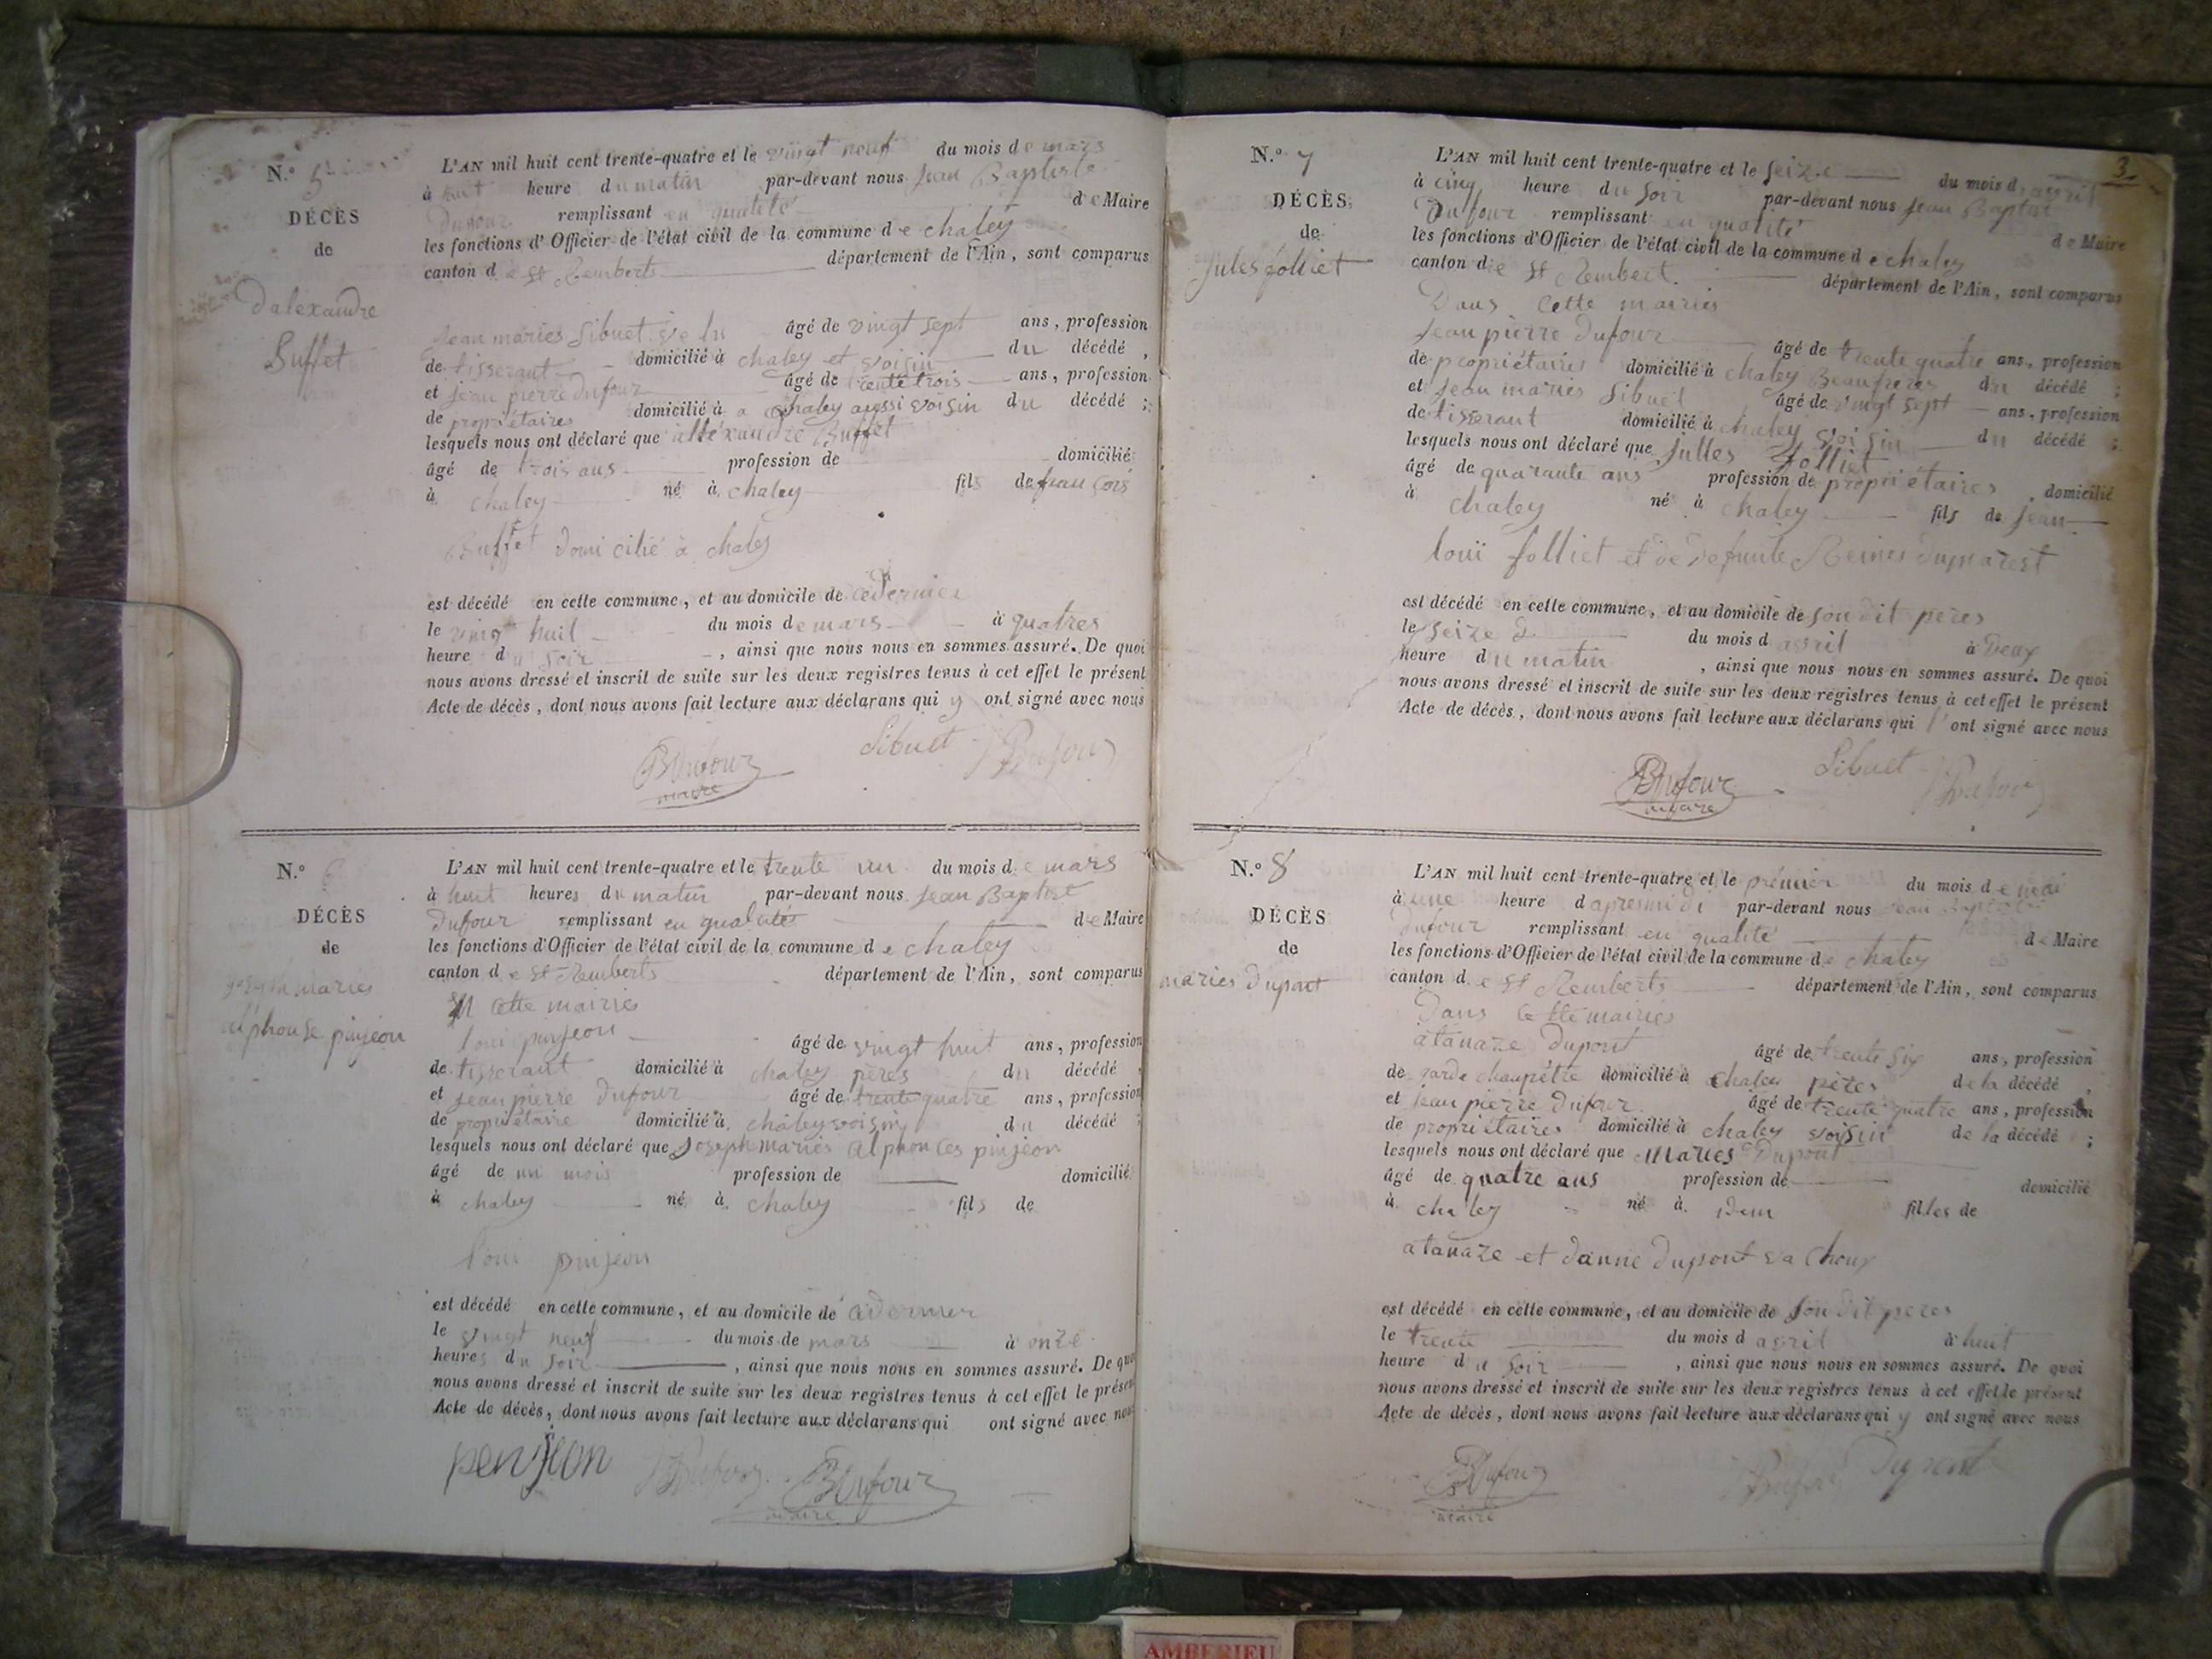 N.o 5
DÉCÈS
de
Dalexandre
Buffet
L'AN mil huit cent trente-quatre et le vingt neuf du mois de mars
à huit heure du matin par-devant nous Jean Baptiste
Dufour remplissant en qualité de Maire
les fonctions d'Officier de l'état civil de la commune de chaley
canton de St Remberts département de l'Ain, sont comparus
Jean maries Sibuet âgé de vingt sept ans, profession
de tisserant domicilié à chaley et voisin du décédé,
et Jean pierre Dufour âgé de trente trois ans, profession
de propriétaires domicilié à a chaley aussi voisin du décédé;
lesquels nous ont déclaré que alléxandre Buffet
âgé de trois ans profession de domicilié
à chaley né à chaley fils de
Buffet Domicilié à chaley
est décédé en cette commune, et au domicile de ce Dernier
le vingt huit du mois de mars à quatres
heure du soir, ainsi que nous nous en sommes assuré. De quoi
nous avons dressé et inscrit de suite sur les deux registres tenus à cet effet le présent
Acte de décès, dont nous avons fait lecture aux déclarans qui y ont signé avec nous
BDufour Sibuet JPDufour
maire
N.o 6
DÉCÈS
de
maries
alphonse pinjeon
L'AN mil huit cent trente-quatre et le trente un du mois de mars
à huit heures du matin par-devant nous Jean Baptist
Duffour remplissant en qualités de Maire
les fonctions d'Officier de l'état civil de la commune de chaley
canton de St Remberts département de l'Ain, sont comparus
cette mairies
loui pinjeon âgé de vingt huit ans, profession
de tisserant domicilié à chaley pères du décédé,
et Jean pierre Dufour âgé de trente quatre ans, profession
de propriétaire domicilié à chaley voisin du décédé;
lesquels nous ont déclaré que Joseph maries alphonces pinjeon
âgé de un mois profession de domicilié
à chaley né à chaley fils de
loui pinjeon
est décédé en cette commune, et au domicile de
le vingt neuf du mois de mars à onze
heures du soir, ainsi que nous nous en sommes assuré. De quoi
nous avons dressé et inscrit de suite sur les deux registres tenus à cet effet le présent
Acte de décès, dont nous avons fait lecture aux déclarans qui ont signé avec nous
penjeon JPDufour BDufour
maire
3.
N.o 7
DÉCÈS
de
Jules folliet
L'AN mil huit cent trente-quatre et le seize du mois d avril
à cinq heure du soir par-devant nous Jean Baptist
Duffour remplissant en qualité de Maire
les fonctions d'Officier de l'état civil de la commune de chaley
canton de St Rembert. département de l'Ain, sont comparus
Dans cette mairies
Jean pierre Dufour âgé de trente quatre ans, profession
de propriétaires domicilié à chaley Beaufreres du décédé;
et Jean maries Sibuet âgé de vingt sept ans, profession
de tisserant domicilié à chaley voisin du décédé;
lesquels nous ont déclaré que Julles folliet
âgé de quarante ans profession de propriétaires, domicilié
à chaley né à chaley fils de Jean
louï folliet et de Defunte Reines Dumarest
est décédé en cette commune, et au domicile de son dit peres
le seize du mois d avril à Deux
heure du matin, ainsi que nous nous en sommes assuré. De quoi
nous avons dressé et inscrit de suite sur les deux registres tenus à cet effet le présent
Acte de décès, dont nous avons fait lecture aux déclarans qui ont signé avec nous
BDufour Sibuet JPDufour
maire
N.o 8
DÉCÈS
de
maries Dupont
L'AN mil huit cent trente-quatre et le prémier du mois de mai
à une heure d apresmidi par-devant nous Jean Baptiste
Dufour remplissant en qualité de Maire
les fonctions d'Officier de l'état civil de la commune de chaley
canton de St Remberts département de l'Ain, sont comparus
Dans cette mairies
atanaze Dupont âgé de trente six ans, profession
de garde champétre domicilié à chaley pères de la décédé,
et Jean pierre Dufour âgé de trente quatre ans, profession
de propriétaires domicilié à chaley voisin de la décédé;
lesquels nous ont déclaré que maries Dupont
âgé de quatre ans profession de domicilié
à chaley né à idem filles de
atanaze et Danne Dupont
est décédé en cette commune, et au domicile de son dit peres
le trente du mois d avril à huit
heure du soir, ainsi que nous nous en sommes assuré. De quoi
nous avons dressé et inscrit de suite sur les deux registres tenus à cet effet le présent
Acte de décès, dont nous avons fait lecture aux déclarans qui y ont signé avec nous
BDufour JPDufour Dupont
maire
AMBERIEU